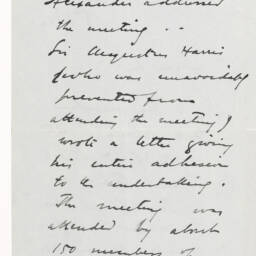 Alexander addressed
the meeting . .
Sir Augustus Harris
(who was unavoidably
prevented from
attending the meeting)
wrote a letter giving
his entire adhesion
to the undertaking.
The meeting was
attended by about
150 members of